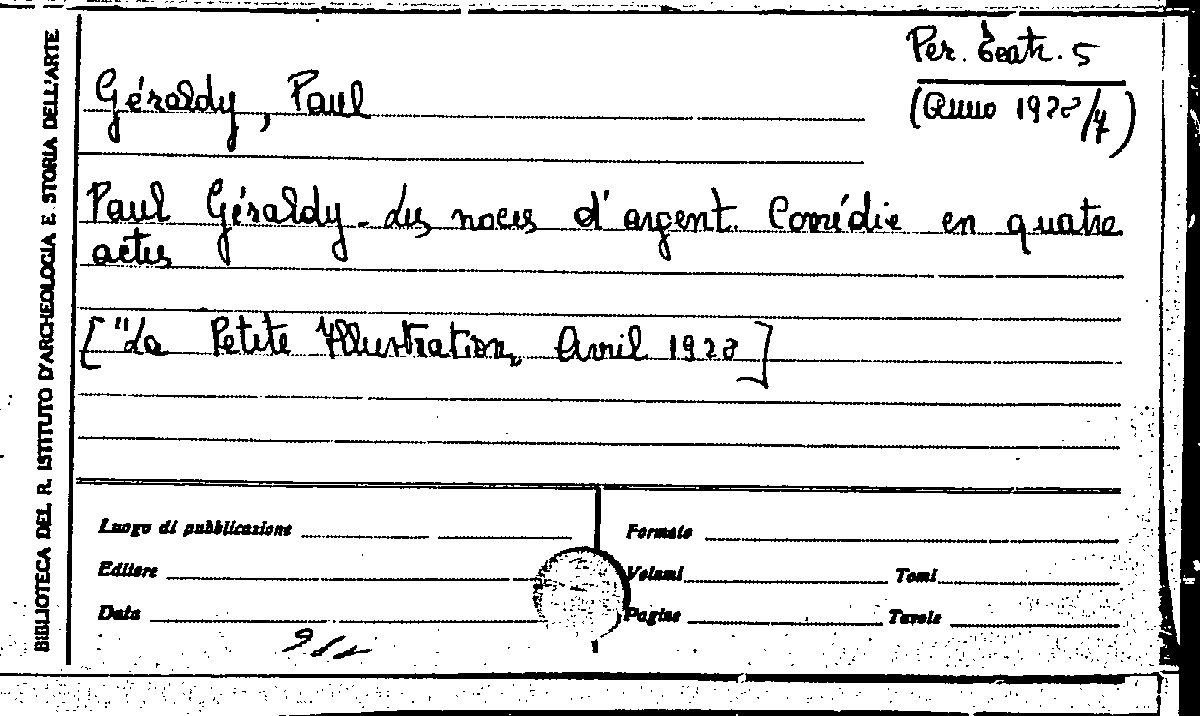 BIBLIOTECA DEL R. ISTITUTO D'ARCHEOLOGIA E STORIA DELL'ARTE
Per. Teatr. 5
(Anno 1923/4)
Géraldy, Paul
Paul Géraldy - Les noces d'argent. Comédie en quatre
actes
["La Petite Illustration, Avril 1923]
Luogo di pubblicazione
Formato
Editore
Volumi
Tomi
Data
Pagine
Tavole